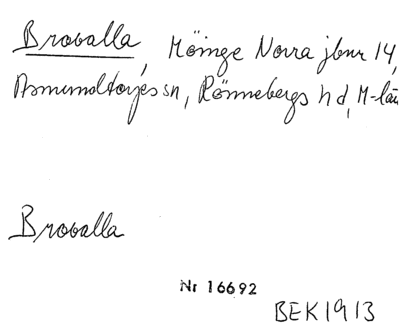 Brovalla, Möinge Norra jbnr 14,
Asmundtorps sn, Rönnebergs hd, M-län
Brovalla
Nr 16692
BEK 1913